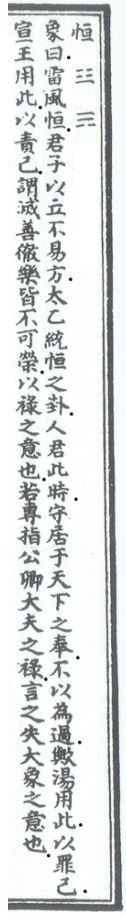 恒
象曰雷風恒君子以立不易方太乙統恒之卦人君此時守居于天下之奉不以為過歟湯用此以罪己
宣王用此以責己謂減善徹樂皆不可榮以祿之意也若專指公卿大夫之祿言之失大象之意也